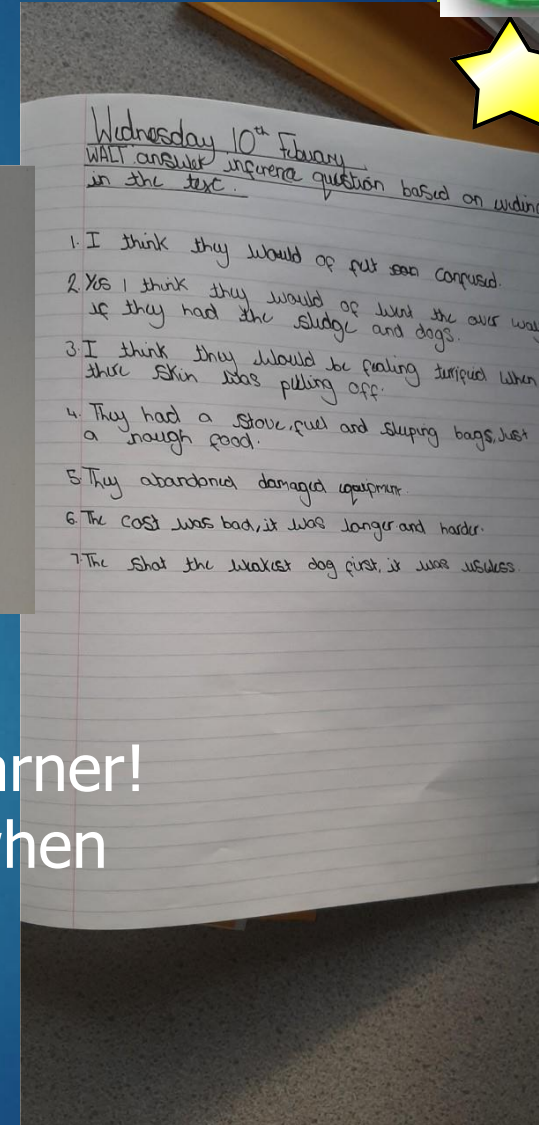 Wednesday 10th Febuary
WALT answer inference question based on evidenc
in the text.
1. I think they would of felt confused.
2. Yes I think they would of went the over way
if they had the sludge and dogs.
3. I think they would be fealing turrifued when
there skin was pulling off.
4. They had a stove, fuel and sleeping bags, just
a nough food.
5. They abandoned damaged equipment.
6. The cost was bad, it was longer and harder.
7. The shot the weakest dog first, it was useless.
arner!
when